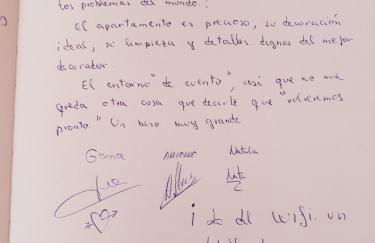 los problemas del mundo.
El apartamento es precioso, su decoración
ideal, su limpieza y detalles dignos del mejor
decorador.
El entorno "de cuento", así que no me
queda otra cosa que decirte que "volveremos
pronto." Un beso muy grande
Natalia
¡Lo del wifi un